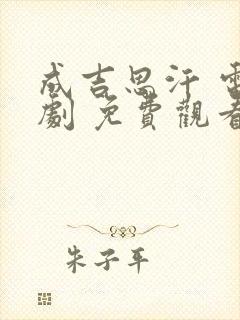 成吉思汗 電
劇 免費觀看
朱子平